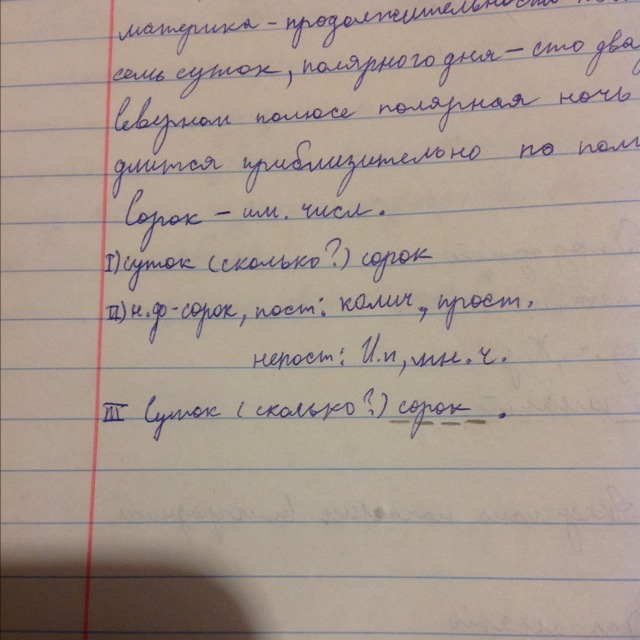 материка - продолжительность
семь суток, полярного дня - сто два
Северном полюсе полярная ночь
длится приблизительно по пол
Сорок - им. числ.
I) суток (сколько?) сорок
II) н.ф - сорок, пост: колич., прост.
непост: И.п, мн.ч.
III Суток (сколько?) сорок.